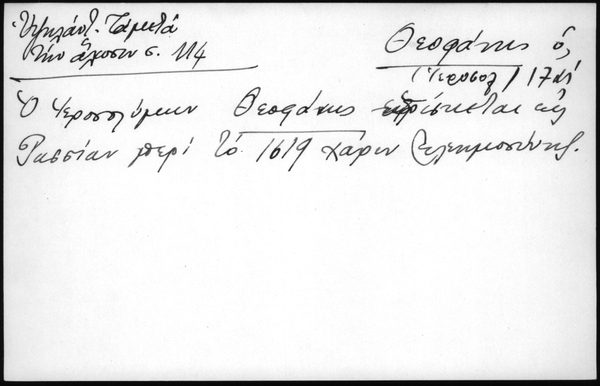 Ὑψηλάντ. Τὰ μετὰ
τὴν ἅλωσιν σ. 114
Θεοφάνης ὁ,
(Ἱεροσολ) 17 αἰ
Ὁ Ἱεροσολύμων Θεοφάνης εὑρίσκεται εἰς
Ρωσσίαν περὶ τὸ 1619 χάριν ἐλεημοσύνης.